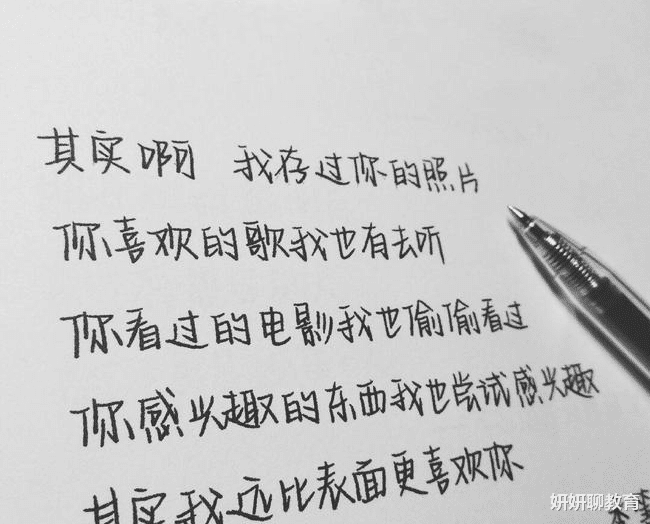 其实啊 我存过你的照片
你喜欢的歌我也有去听
你看过的电影我也偷偷看过
你感兴趣的东西我也尝试感兴趣
其实我远比表面更喜欢你
妍妍聊教育